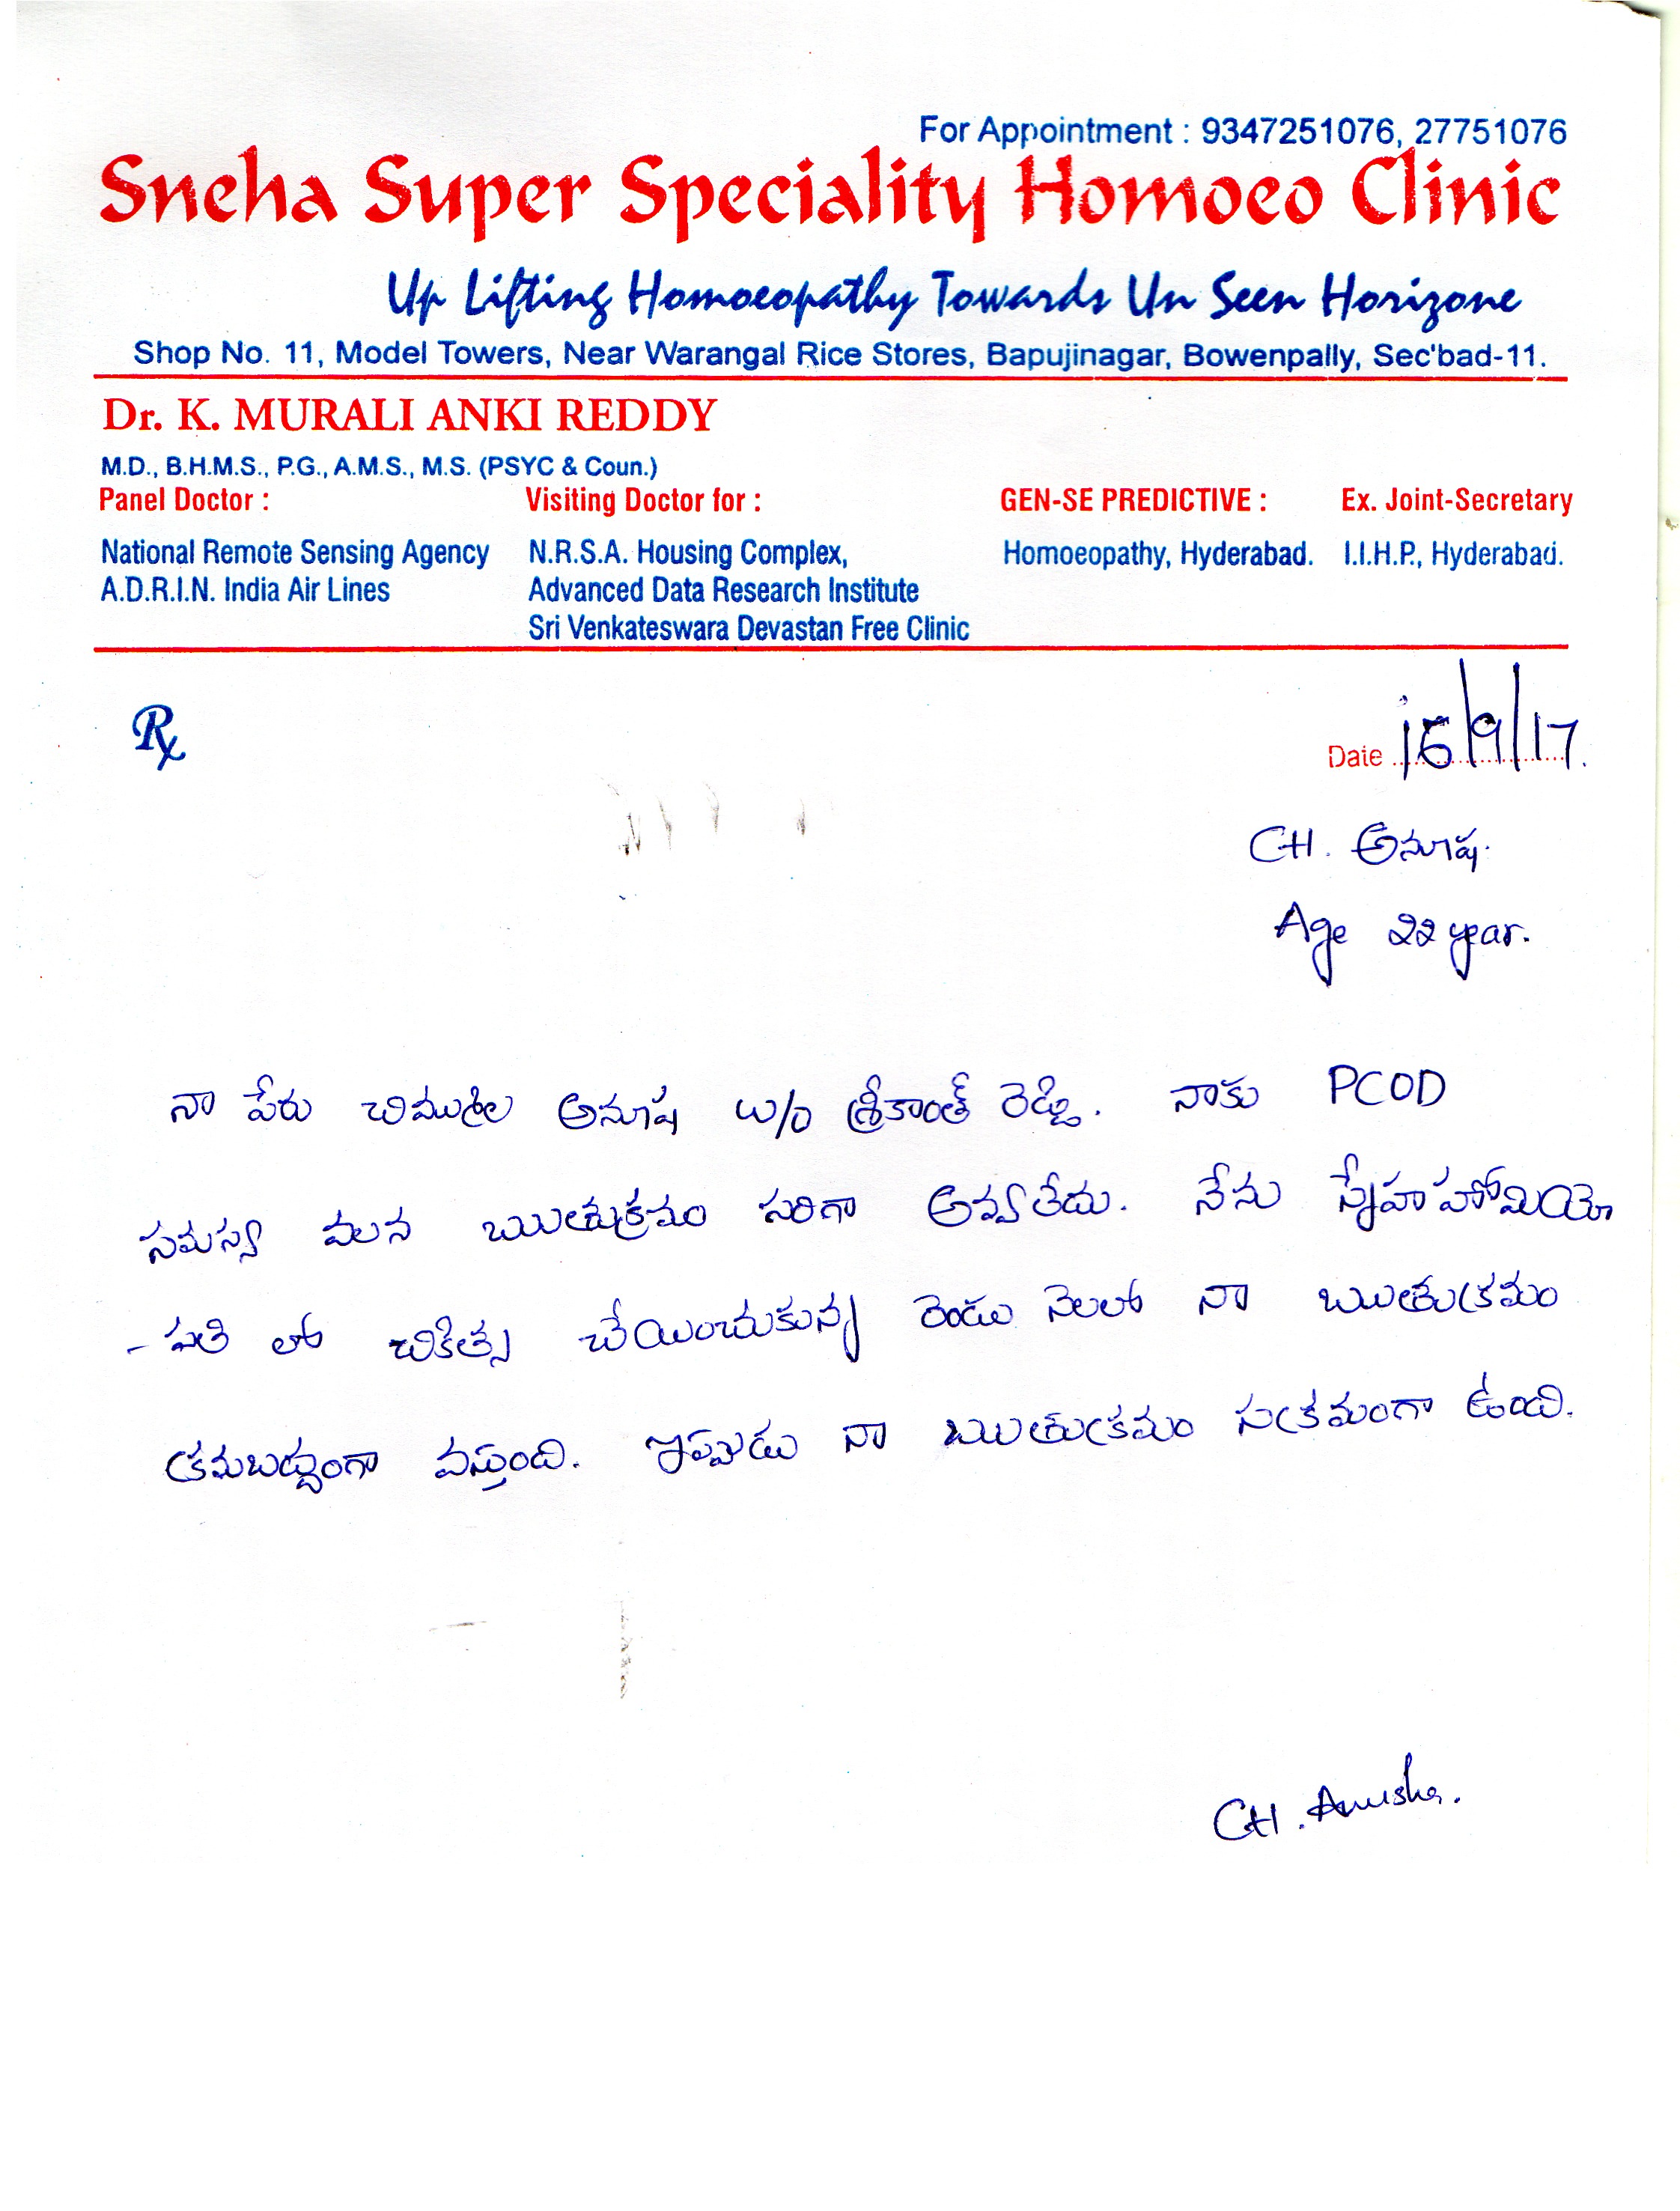 For Appointment : 9347251076, 27751076
Sneha Super Speciality Homoeo Clinic
Up Lifting Homoeopathy Towards Un Seen Horizone
Shop No. 11, Model Towers, Near Warangal Rice Stores, Bapujinagar, Bowenpally, Sec'bad-11.
Dr. K. MURALI ANKI REDDY
M.D., B.H.M.S., P.G., A.M.S., M.S. (PSYC & Coun.)
Panel Doctor : Visiting Doctor for : GEN-SE PREDICTIVE : Ex. Joint-Secretary
National Remote Sensing Agency N.R.S.A. Housing Complex, Homoeopathy, Hyderabad. I.I.H.P., Hyderabad.
A.D.R.I.N. India Air Lines Advanced Data Research Institute
Sri Venkateswara Devastan Free Clinic
Rx
Date 15/9/17.
CH. అనూష.
Age 22 year.
నా పేరు అనూష w/o శ్రీకాంత్ రెడ్డి. నాకు PCOD
సమస్య వలన ఋతుక్రమం సరిగా అవ్వలేదు. నేను స్నేహహోమియో
- పతి లో చికిత్స చేయించుకున్న రెండు నెలలో నా ఋతుక్రమం
క్రమబద్దంగా వస్తుంది. ఇప్పుడు నా ఋతుక్రమం సక్రమంగా ఉంది.
CH. Anusha.